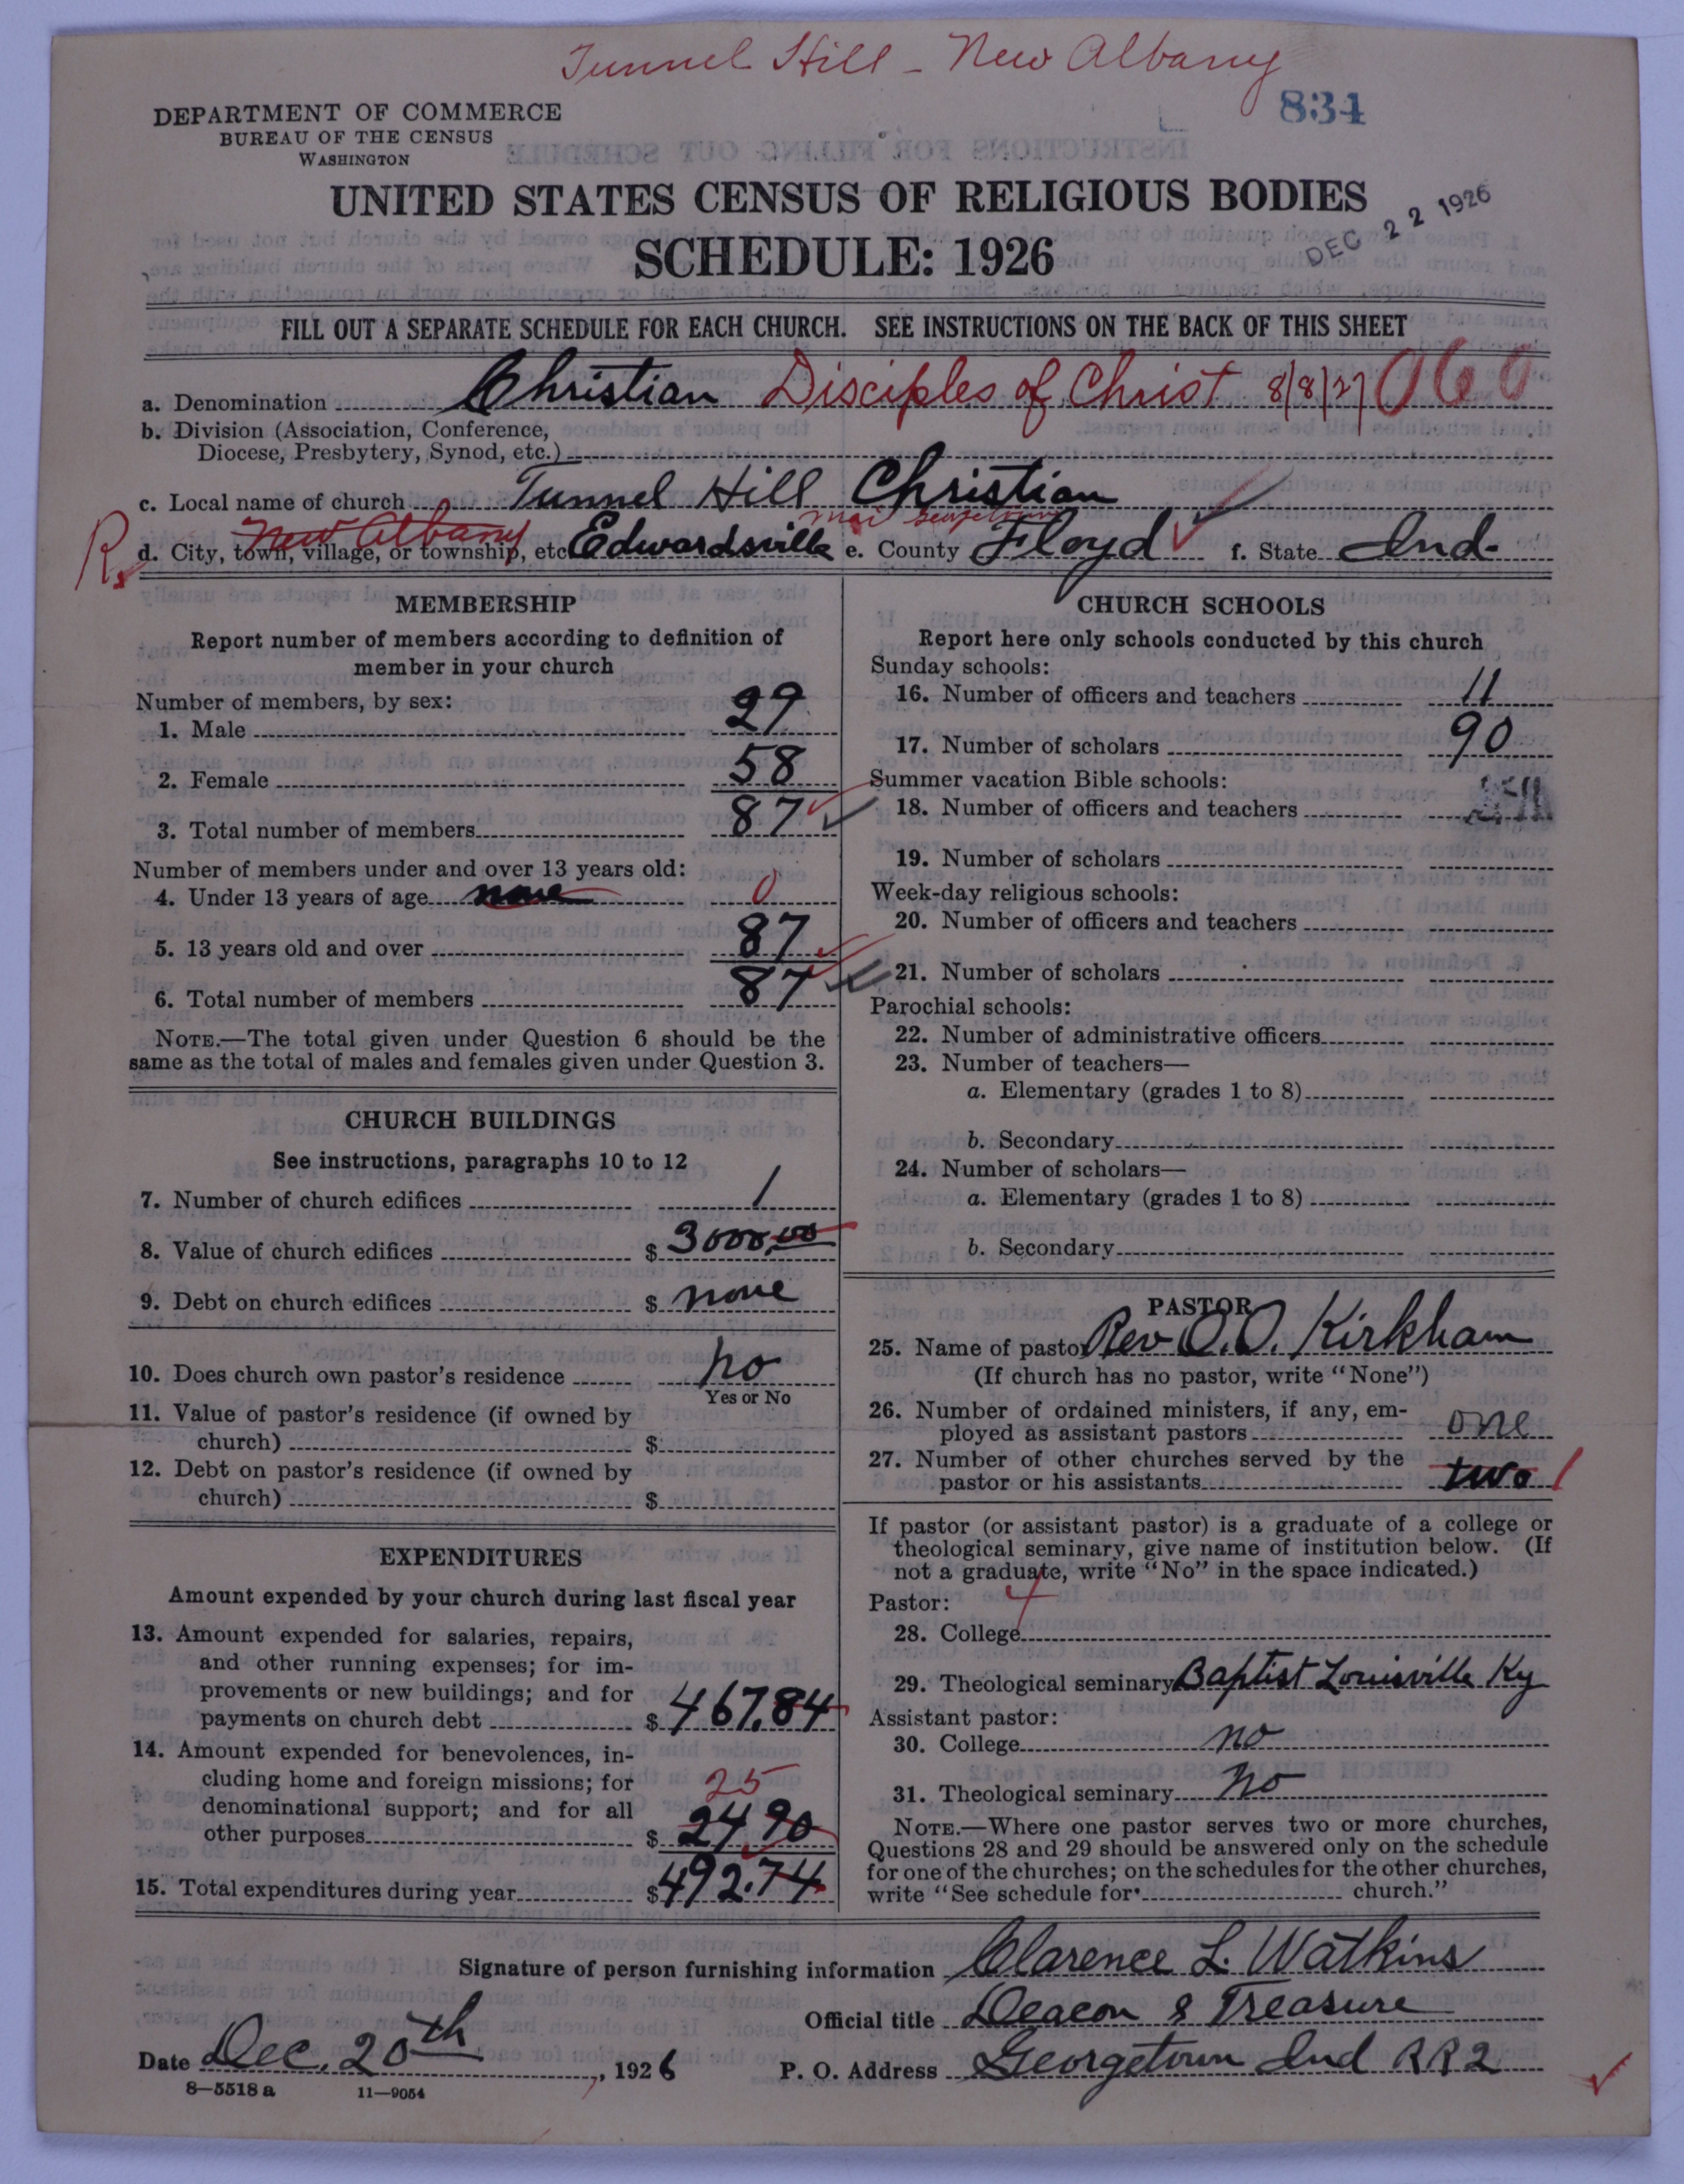 Tunnel Hill - New Albany
834
DEPARTMENT OF COMMERCE
BUREAU OF THE CENSUS
WASHINGTON
UNITED STATES CENSUS OF RELIGIOUS BODIES
SCHEDULE: 1926
DEC 22 1926
FILL OUT A SEPARATE SCHEDULE FOR EACH CHURCH. SEE INSTRUCTIONS ON THE BACK OF THIS SHEET
a. Denomination Christian Disciples of Christ 8/8/27 060
b. Division (Association, Conference,
Diocese, Presbytery, Synod, etc.)
c. Local name of church Tunnel Hill Christian
New Albany
R. d. City, town, village, or township, etc Edwardsville e. County Floyd f. State Ind.
MEMBERSHIP
Report number of members according to definition of
member in your church
Number of members, by sex:
1. Male 29
2. Female 58
3. Total number of members 87
Number of members under and over 13 years old:
4. Under 13 years of age none 0
5. 13 years old and over 87
6. Total number of members 87
NOTE.—The total given under Question 6 should be the
same as the total of males and females given under Question 3.
CHURCH BUILDINGS
See instructions, paragraphs 10 to 12
7. Number of church edifices 1
8. Value of church edifices $ 3000.00
9. Debt on church edifices $ none
10. Does church own pastor's residence no
Yes or No
11. Value of pastor's residence (if owned by
church) $
12. Debt on pastor's residence (if owned by
church) $
EXPENDITURES
Amount expended by your church during last fiscal year
13. Amount expended for salaries, repairs,
and other running expenses; for im-
provements or new buildings; and for
payments on church debt $ 467.84
14. Amount expended for benevolences, in-
cluding home and foreign missions; for
25
denominational support; and for all
other purposes $ 24.90
15. Total expenditures during year $ 492.74
CHURCH SCHOOLS
Report here only schools conducted by this church
Sunday schools:
16. Number of officers and teachers 11
17. Number of scholars 90
Summer vacation Bible schools:
18. Number of officers and teachers
19. Number of scholars
Week-day religious schools:
20. Number of officers and teachers
21. Number of scholars
Parochial schools:
22. Number of administrative officers
23. Number of teachers—
a. Elementary (grades 1 to 8)
b. Secondary
24. Number of scholars—
a. Elementary (grades 1 to 8)
b. Secondary
PASTOR
25. Name of pastor Rev O.O. Kirkham
(If church has no pastor, write "None")
26. Number of ordained ministers, if any, em-
ployed as assistant pastors one
27. Number of other churches served by the
pastor or his assistants two 1
If pastor (or assistant pastor) is a graduate of a college or
theological seminary, give name of institution below. (If
not a graduate, write "No" in the space indicated.)
Pastor: 4
28. College
29. Theological seminary Baptist Louisville Ky
Assistant pastor:
30. College no
31. Theological seminary no
NOTE.—Where one pastor serves two or more churches,
Questions 28 and 29 should be answered only on the schedule
for one of the churches; on the schedules for the other churches,
write "See schedule for church."
Signature of person furnishing information Clarence L. Watkins
Official title Deacon & Treasure
Date Dec. 20th, 1926 P. O. Address Georgetown Ind RR2
8—5518 a 11—9054